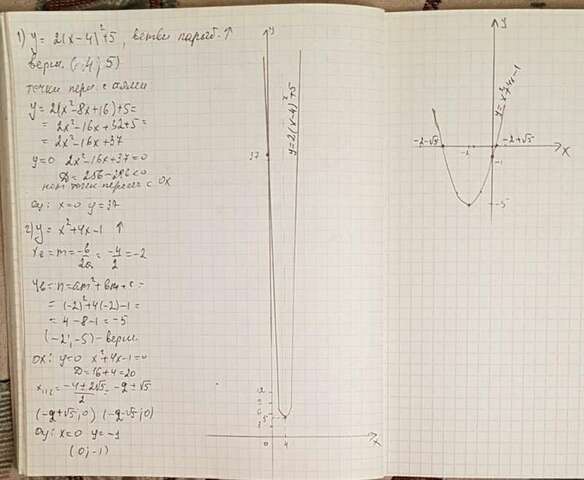 1) y = 2(x-4)²+5, ветви параб. ↑
верш (4; 5)
точки перес. с осями
y = 2(x²-8x+16)+5=
= 2x²-16x+32+5=
= 2x²-16x+37
y=0 2x²-16x+37=0
D=256-296<0
нет точек пересеч с OX
Oy: x=0 y=37
2) y = x²+4x-1 ↑
xв = m = -b/2a = -4/2 = -2
yв = n = am²+bm+c =
= (-2)²+4(-2)-1=
= 4-8-1=-5
(-2; -5) - верш.
OX: y=0 x²+4x-1=0
D=16+4=20
x₁,₂ = -4±2√5/2 = -2±√5
(-2+√5;0) (-2-√5;0)
Oy: x=0 y=-1
(0;-1)
y
37
y=2(x-4)²+5
5
1
0 4 x
y
y=x²+4x-1
-2-√5
-2+√5
x
-1
-5